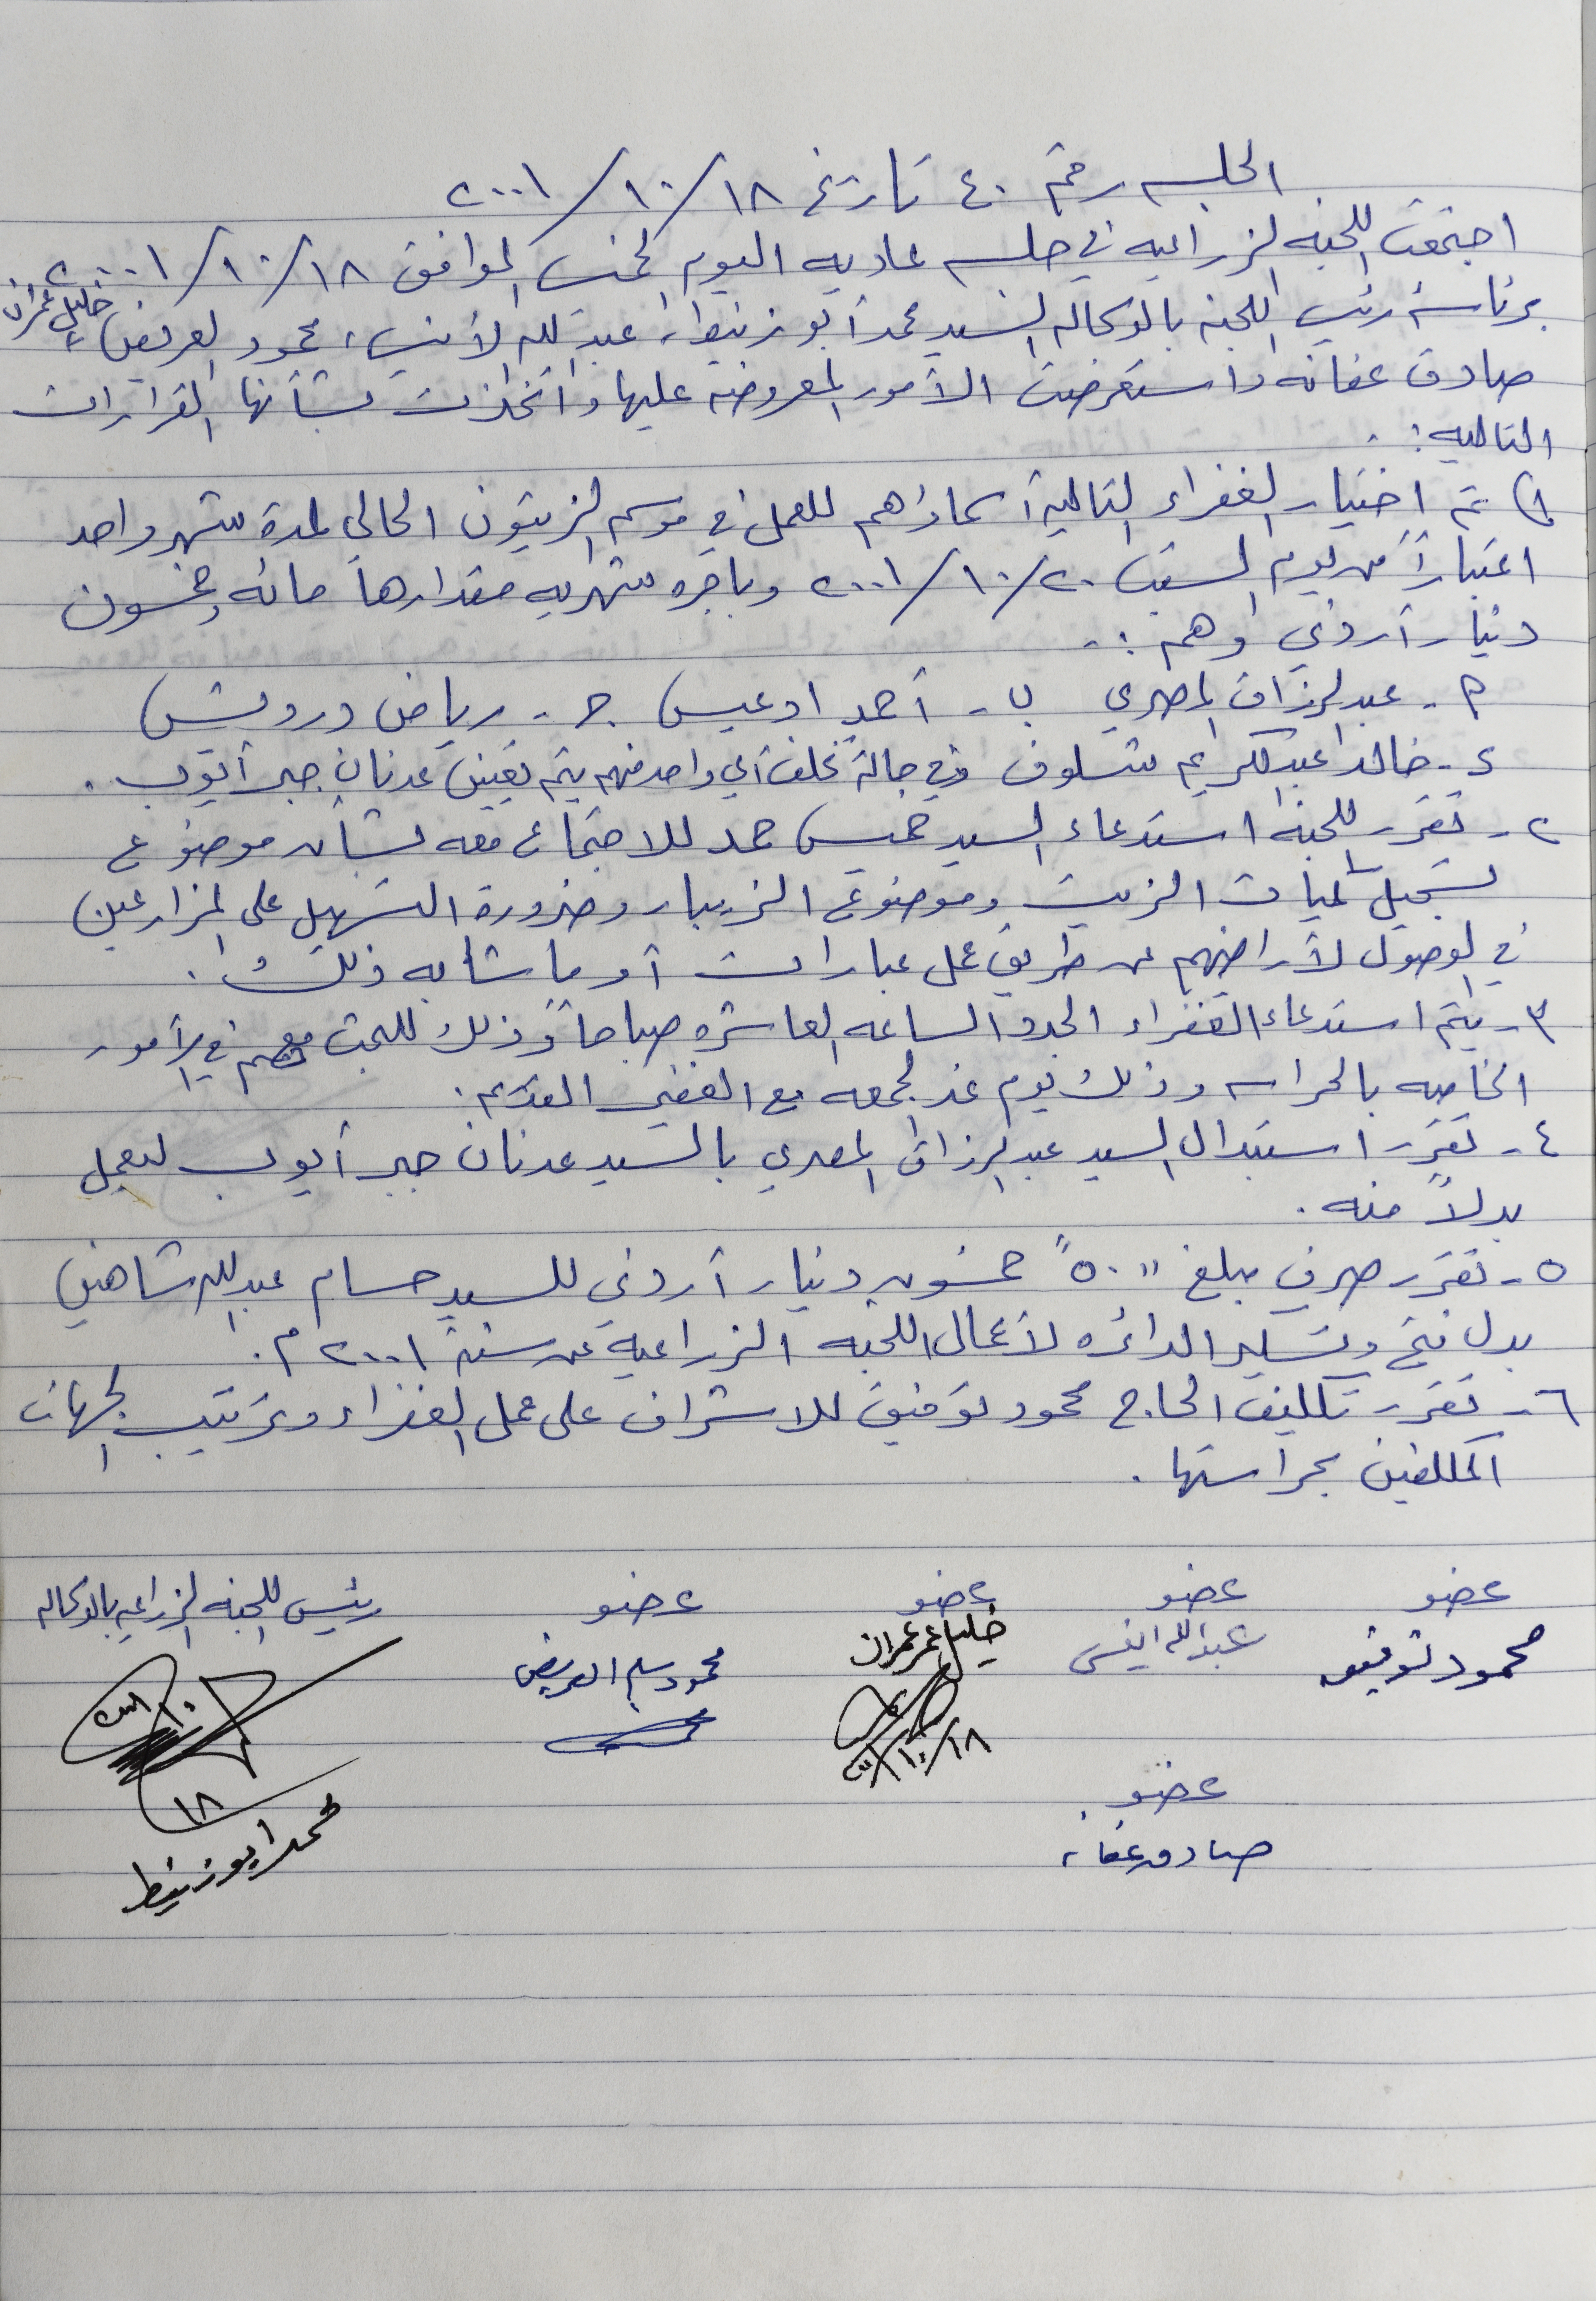 الجلسه رقم ٤٠ تاريخ ١٨/١٠/٢٠٠١
اجتمعت اللجنه الزراعيه في جلسه عاديه اليوم الخميس الموافق ١٨/١٠/٢٠٠١
برئاسة رئيس اللجنه بالوكاله السيد محمد أبو زنيط، عبد الله الأنيس، محمود العريض، خليل عمران
صادق عفانه واستعرضت الأمور المعروضه عليها واتخذت بشأنها القرارات
التاليه :
١) تم اختيار الغفراء التالية أسماؤهم للعمل في موسم الزيتون الحالي لمدة شهر واحد
اعتباراً من يوم السبت ٢٠/١٠/٢٠٠١ وباجره شهريه مقدارها مائه وخمسون
دينار أردني وهم :-
أ - عبد الرزاق المصري ب - أحمد ادعيس ج - رياض درويش
د - خالد عبد الكريم شلوف وفي حالة تخلف أي واحد منهم يتم تعيين عدنان جبر أيوب .
٢ - تقرر اللجنه استدعاء السيد خميس حمد للاجتماع معه بشأن موضوع
تسجيل كميات الزيت وموضوع الزيبار وضرورة التسهيل على المزارعين
في الوصول لأراضيهم عن طريق عمل عبارات أو ما شابه ذلك .
٣ - يتم استدعاء الغفراء الجدد الساعه العاشره صباحاً وذلك للبحث معهم في الأمور
الخاصه بالحراسه وذلك يوم غد الجمعه مع الغفير القديم .
٤ - تقرر استبدال السيد عبد الرزاق المصري بالسيد عدنان جبر أيوب ليعمل
بدلاً منه .
٥ - تقرر صرف مبلغ "٥٠" خمسون دينار أردني للسيد حسام عبد الله شاهين
بدل فتح وتسكير الدائره لأعمال اللجنه الزراعية عن سنة ٢٠٠١ م .
٦ - تقرر تكليف الحاج محمود توفيق للاشراف على عمل الغفراء وترتيب الجهات
المكلفين بحراستها .
عضو عضو عضو عضو رئيس اللجنه الزراعيه بالوكاله
محمود توفيق عبد الله انيس خليل عمر عمران محمود سليم العريض
١٨/١٠/٢٠٠١
١٨
عضو
صادق عفانه
محمد ابو زنيط